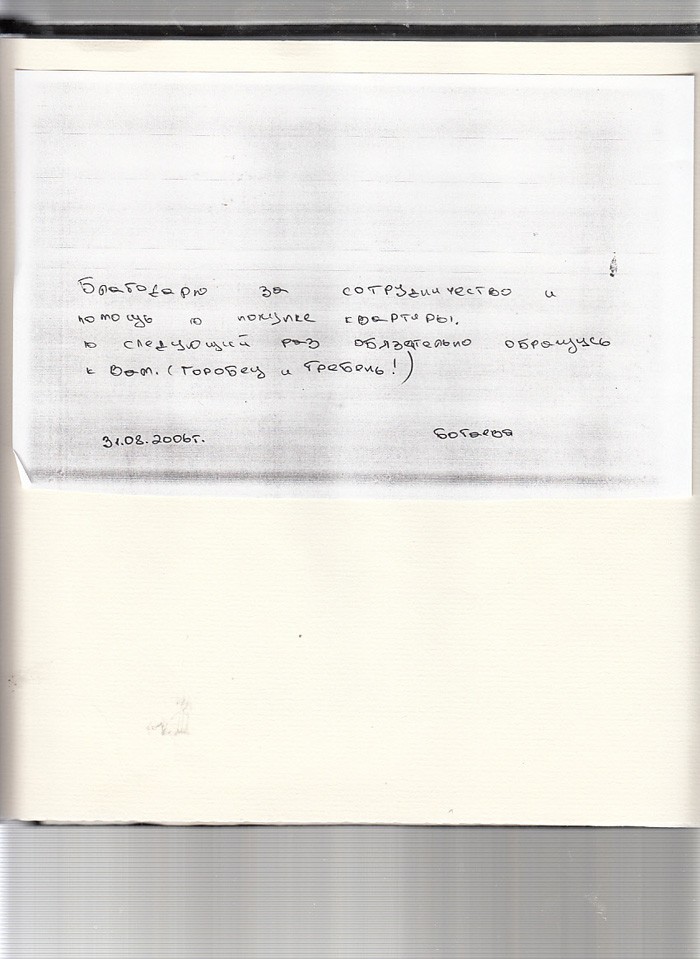 Благодарю за сотрудничество и
помощь в покупке квартеры.
в следующий раз обязательно обращусь
к Вам. (Горобец и Гребень!)
31.08.2006г. Ботаева